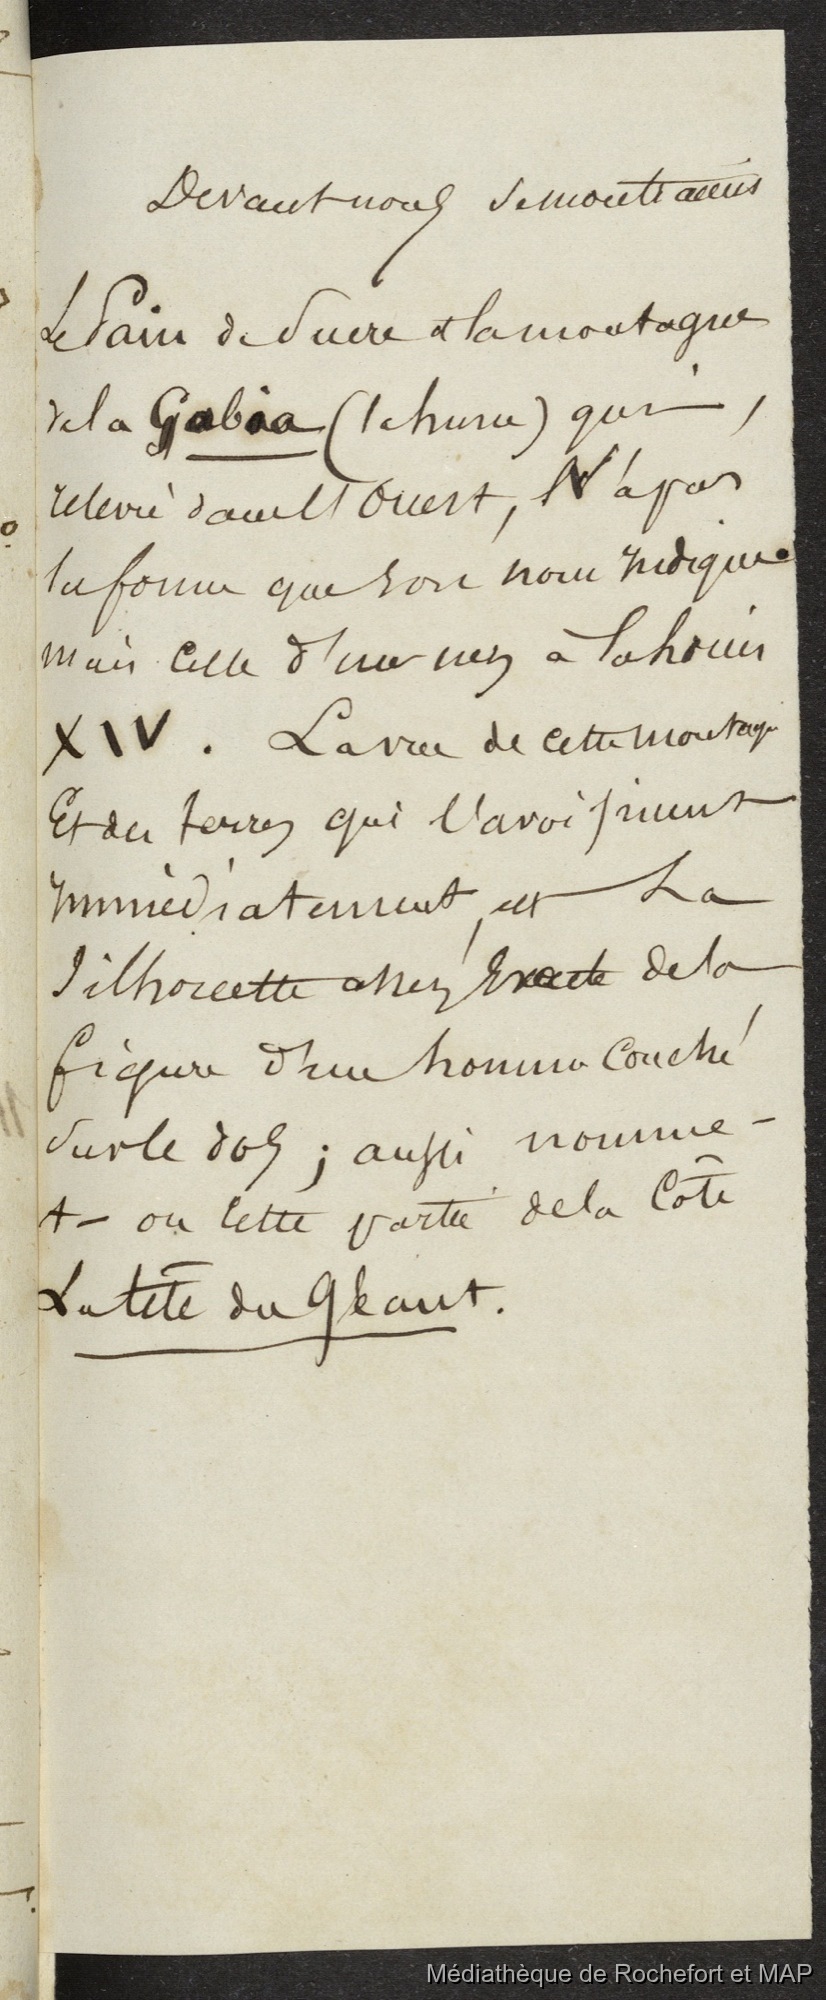 Devant nous se montraient
Le Pain de Sucre et la montagne
de la Gabia (la hune) qui,
relevé dans l'Ouest, N'a pas
la forme que son nom Indique
mais celle d'un nez à la Louis
XIV. La vue de cette montagne
Et des terres qui l'avoisinent
Immédiatement, est La
Silhouette assez Exacte de la
figure d'un homme Couché
Sur le dos ; aussi nomme-
t-on Cette partie de la Côte
La tête du Géant.
Médiathèque de Rochefort et MAP